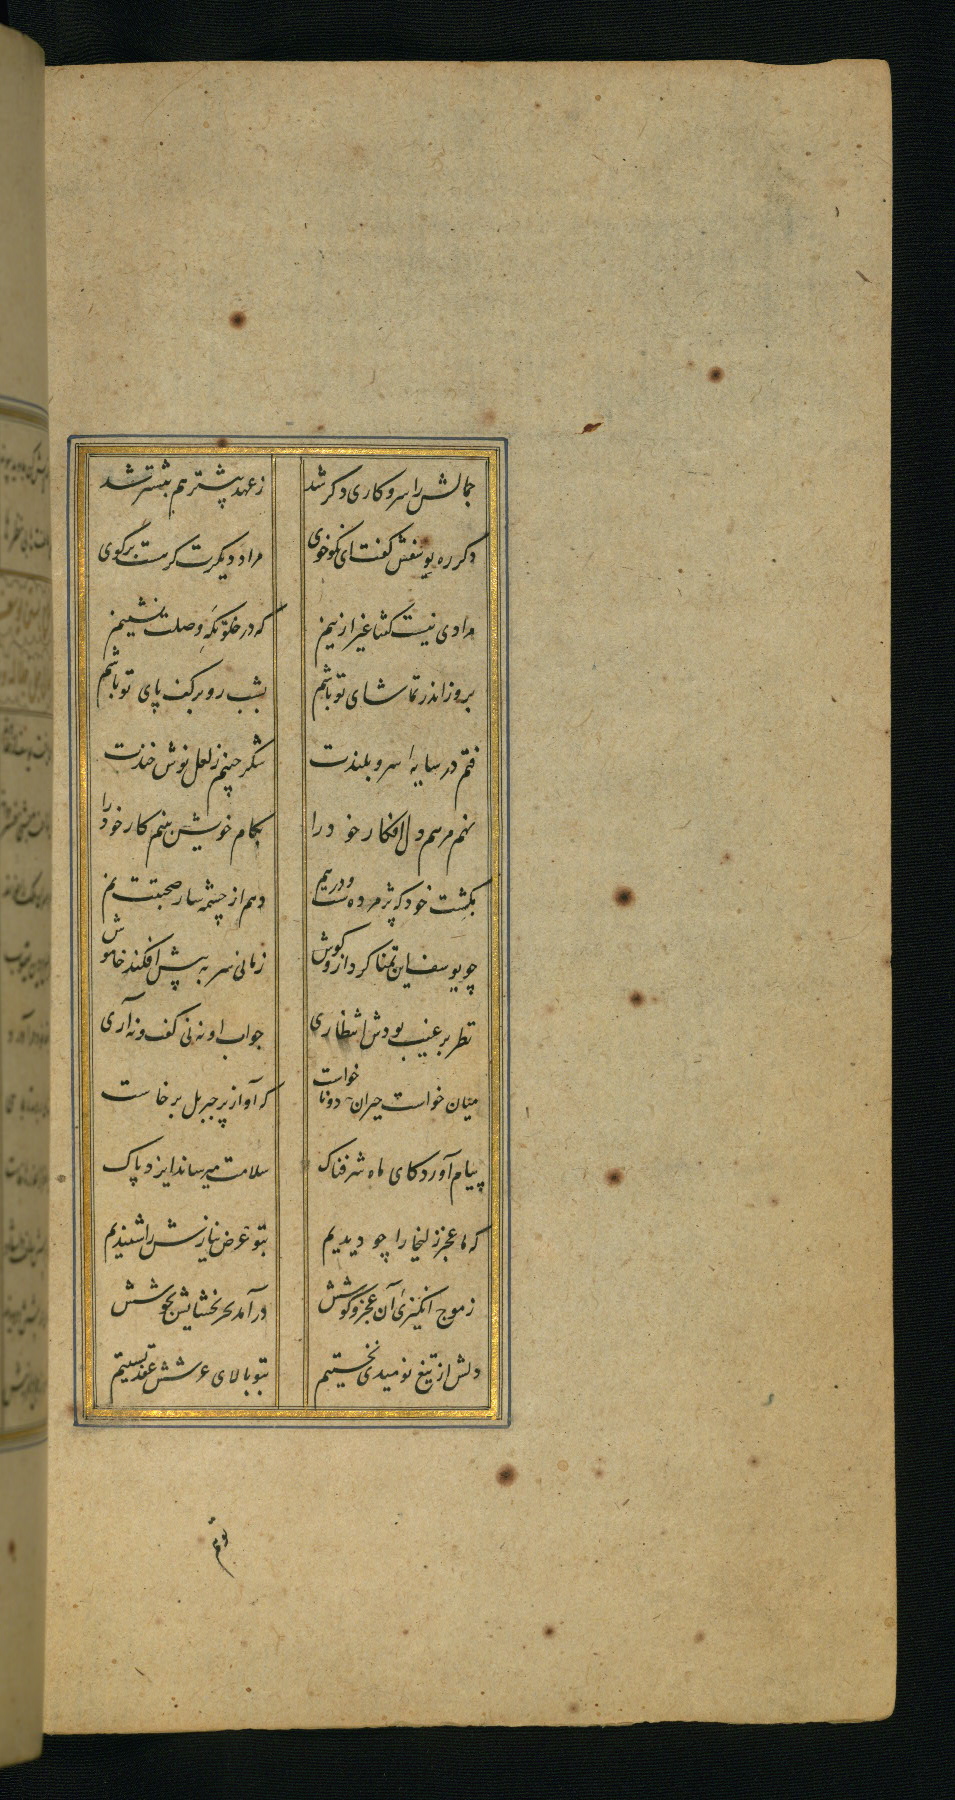 جمالش را سر و کاری دگر شد ز عهد پیشتر هم بیشتر شد
دگر ره یوسفش گفت ای نکوخوی مراد دیگرت گر هست برگوی
مرادی نیست گفتا غیر ازینم که در خلوتگه وصلت نشینم
بروز اندر تماشای تو باشم بشب رو بر کف پای تو باشم
فتم در سایهٔ سرو بلندت شکر چینم ز لعل نوش خندت
نهم مرهم دل افکار خود را بکام خویش بینم کار خود را
بکشت خود که پژمرده ست و درهم دهم از چشمه سار صحبتت نم
چو یوسف این تمنا کرد ازو گوش زمانی سر به پیش افکند خاموش
نظر بر غیب بودش انتظاری جواب او نه نی گفت و نه آری
میان خواست حیران بود و ناخواست که آواز پر جبریل برخاست
پیام آورد کای شاه شرفناک سلامت میرساند ایزد پاک
که ما عجز زلیخا را چو دیدیم بتو عرض نیازش را شنیدیم
ز موج انگیزی آن عجز و کوشش در آمد بحر بخشایش بجوشش
دلش از تیغ نومیدی نخستیم بتو بالای عرشش عقد بستیم
تو هم